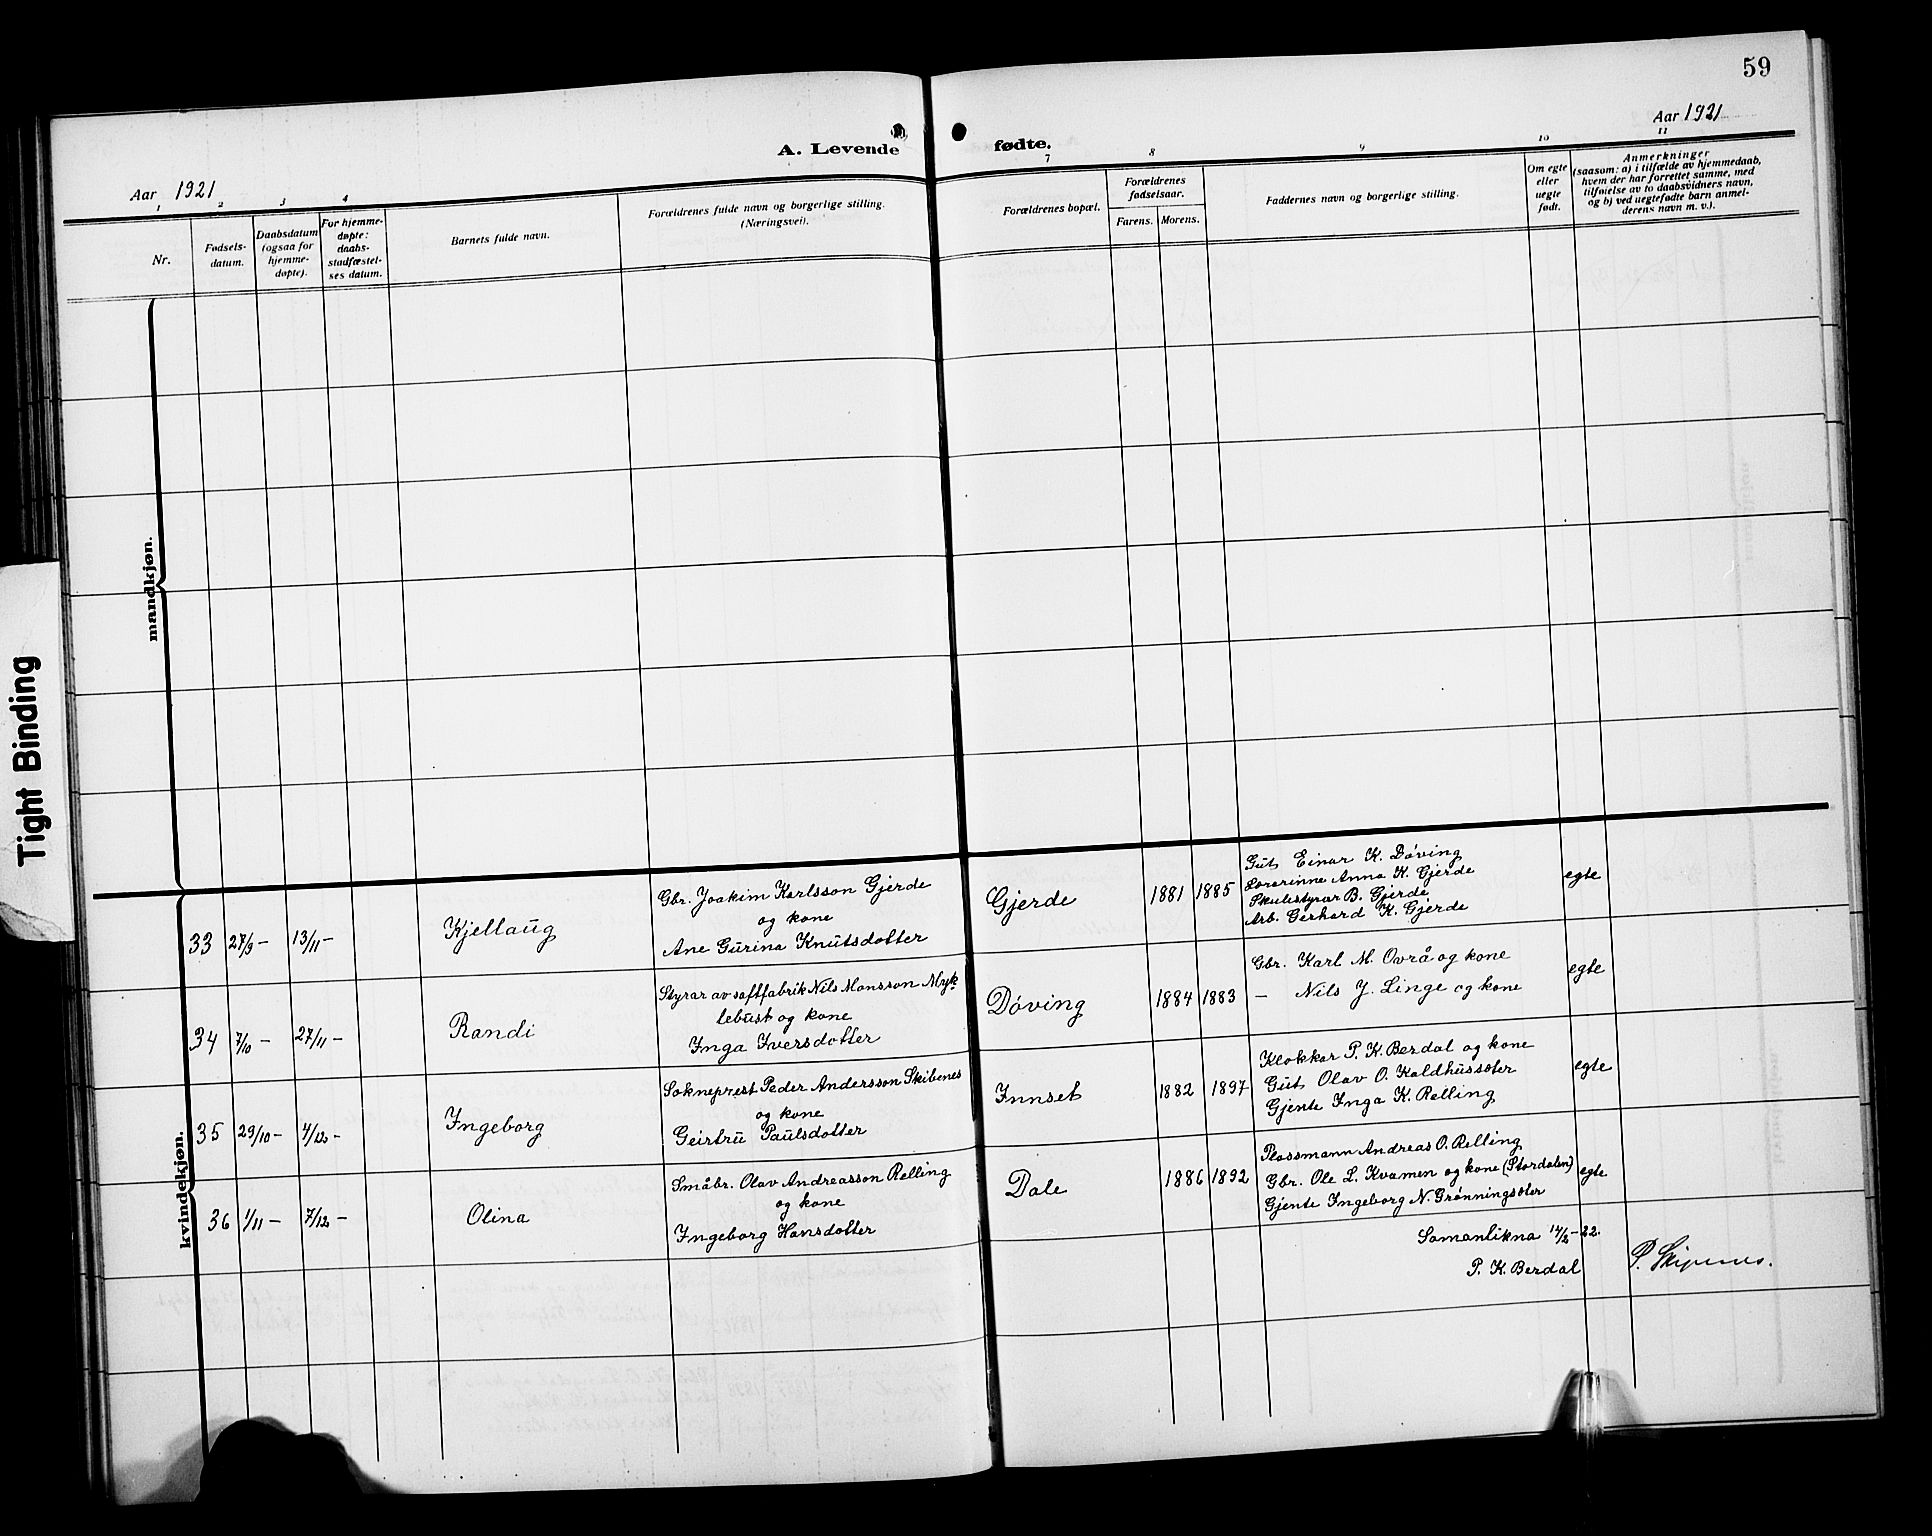 59
Aar 1921
Aar 1921
A. Levende
fødte.
1
2
3
4
7
8
9
10
11
Nr.
Fødsels-
datum.
Daabsdatum
(ogsaa for
hjemme-
døpte).
For hjemme-
døpte:
daabs-
stadfæstel-
ses datum.
Barnets fulde navn.
Forældrenes fulde navn og borgerlige stilling.
(Næringsvei).
Forældrenes bopæl.
Forældrenes
fødselsaar.
Farens.
Morens.
Faddernes navn og borgerlige stilling.
Om egte
eller
uegte
født.
Anmerkninger
(saasom: a) i tilfælde av hjemmedaab,
hvem der har forrettet samme, med
tilføielse av to daabsvidners navn,
og b) ved uegtefødte barn anmel-
derens navn m. v.).
mandkjøn.
Tight Binding
kvindekjøn.
33 27/9 - 13/11 - Kjellaug
Gbr. Joakim Karlsson Gjerde
og kone
Ane Gurina Knutsdotter
Gjerde 1881 1885
Gut Einar K. Døving
Lærarinne Anna K. Gjerde
Skulestyrar B. Gjerde
Arb. Gerhard K. Gjerde
egte
34 7/10 - 27/11 - Randi
Styrar av saftfabrik Nils Monsson Myk-
lebust og kone
Inga Iversdotter
Døving 1884 1883
Gbr. Karl M. Ovrå og kone
- Nils J. Linge og kone
egte
35 29/10 - 4/12 - Ingeborg
Sokneprest Peder Andersson Skibenes
og kone
Geirtru Paulsdotter
Innset 1882 1897
Klokkar P. K. Berdal og kone
Gut Olav O. Kaldhussæter
Gjente Inga K. Relling
egte
36 1/11 - 7/12 - Olina
Småbr. Olav Andreasson Relling
og kone
Ingeborg Hansdotter
Dale 1886 1892
Plassmann Andreas O. Relling
Gbr. Ole L. Kvamen og kone (Stordalen)
Gjente Ingeborg N. Grønningsæter
egte
Samanlikna 14/2-22.
P. K. Berdal
P. Skipenes.